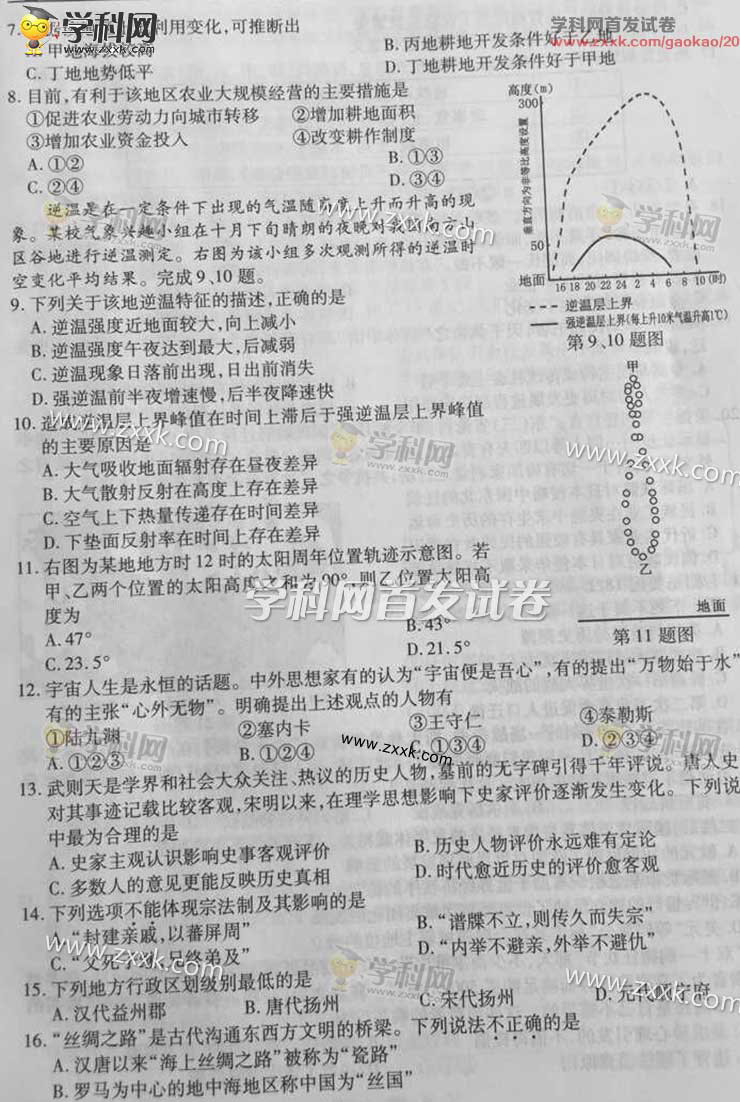 学科网
学科网首发试卷
www.zxxk.com/gaokao/20
7.
利用变化,可推断出
B. 丙地耕地开发条件好于乙地
C. 丁地地势低平
D. 丁地耕地开发条件好于甲地
8. 目前,有利于该地区农业大规模经营的主要措施是
①促进农业劳动力向城市转移 ②增加耕地面积
③增加农业资金投入 ④改变耕作制度
A. ①② B. ①③
C. ②④ D. ③④
逆温是在一定条件下出现的气温随高度上升而升高的现
象。某校气象兴趣小组在十月下旬晴朗的夜晚对我
区谷地进行逆温测定。右图为该小组多次观测所得的逆温时
空变化平均结果。完成9、10题。
高度(m)
300
垂直方向为非等比高度设置
50
地面
16 18 20 22 24 2 4 6 8 10 (时)
逆温层上界
强逆温层上界(每上升10米气温升高1℃)
第9、10题图
9. 下列关于该地逆温特征的描述,正确的是
A. 逆温强度近地面较大,向上减小
B. 逆温强度午夜达到最大,后减弱
C. 逆温现象日落前出现,日出前消失
D. 强逆温前半夜增速慢,后半夜降速快
10. 造成逆温层上界峰值在时间上滞后于强逆温层上界峰值
的主要原因是
A. 大气吸收地面辐射存在昼夜差异
B. 大气散射反射在高度上存在差异
C. 空气上下热量传递存在时间差异
D. 下垫面反射率在时间上存在差异
11. 右图为某地地方时12时的太阳周年位置轨迹示意图。若
甲、乙两个位置的太阳高度之和为90°,则乙位置太阳高
度为
A. 47° B. 43°
C. 23.5° D. 21.5°
甲
乙
地面
第11题图
12. 宇宙人生是永恒的话题。中外思想家有的认为“宇宙便是吾心”,有的提出“万物始于水”
有的主张“心外无物”。明确提出上述观点的人物有
①陆九渊 ②塞内卡 ③王守仁 ④泰勒斯
A. ①②③ B. ①②④ C. ①③④ D. ②③④
13. 武则天是学界和社会大众关注、热议的历史人物,墓前的无字碑引得千年评说。唐人史
对其事迹记载比较客观,宋明以来,在理学思想影响下史家评价逐渐发生变化。下列说
中最为合理的是
A. 史家主观认识影响史事客观评价 B. 历史人物评价永远难有定论
C. 多数人的意见更能反映历史真相 D. 时代愈近历史的评价愈客观
14. 下列选项不能体现宗法制及其影响的是
A. “封建亲戚,以蕃屏周” B. “谱牒不立,则传久而失宗”
C. “父死子继,兄终弟及” D. “内举不避亲,外举不避仇”
15. 下列地方行政区划级别最低的是
A. 汉代益州郡 B. 唐代扬州 C. 宋代扬州
16. “丝绸之路”是古代沟通东西方文明的桥梁。下列说法不正确的是
A. 汉唐以来“海上丝绸之路”被称为“瓷路”
B. 罗马为中心的地中海地区称中国为“丝国”